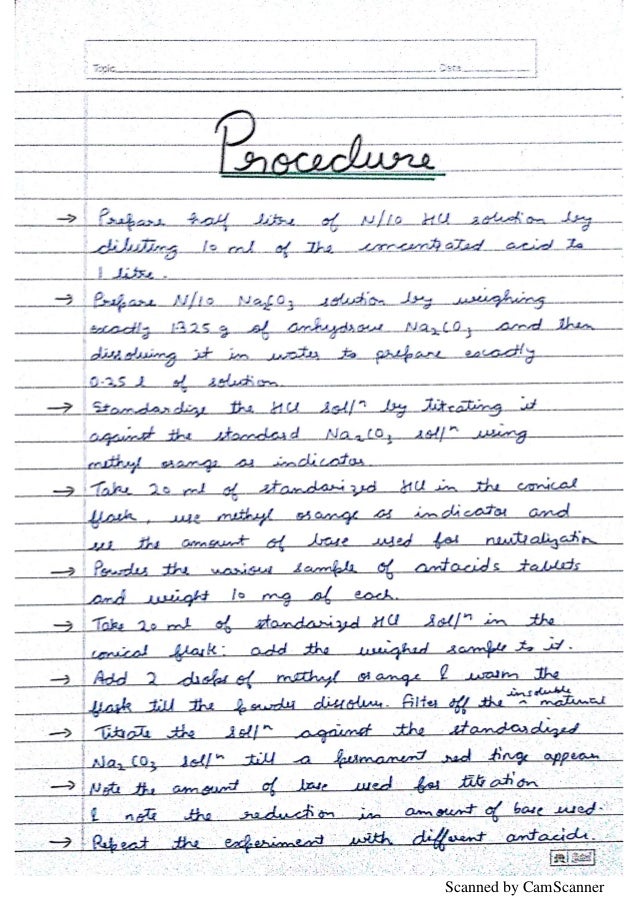 Topic Date
Procedure
→ Prepare half litre of N/10 HCl solution by
diluting 10 ml of the concentrated acid to
1 litre.
→ Prepare N/10 Na2CO3 solution by weighing
exactly 1.325 g of anhydrous Na2CO3 and then
dissolving it in water to prepare exactly
0.25 l of solution.
→ Standardize the HCl solⁿ by titrating it
against the standard Na2CO3 solⁿ using
methyl orange as indicator.
→ Take 20 ml of standarized HCl in the conical
flask, use methyl orange as indicator and
see the amount of base used for neutralization
→ Powder the various sample of antacids tablets
and weight 10 mg of each.
→ Take 20 ml of standarized HCl solⁿ in the
conical flask: add the weighed sample to it.
→ Add 2 drops of methyl orange & warm the
flask till the powder dissolves. Filter off the insoluble material
→ Titrate the solⁿ against the standardized
Na2CO3 solⁿ till a permanent red tinge appears
→ Note the amount of base used for titration
& note the reduction in amount of base used.
→ Repeat the experiment with different antacids.
Scanned by CamScanner